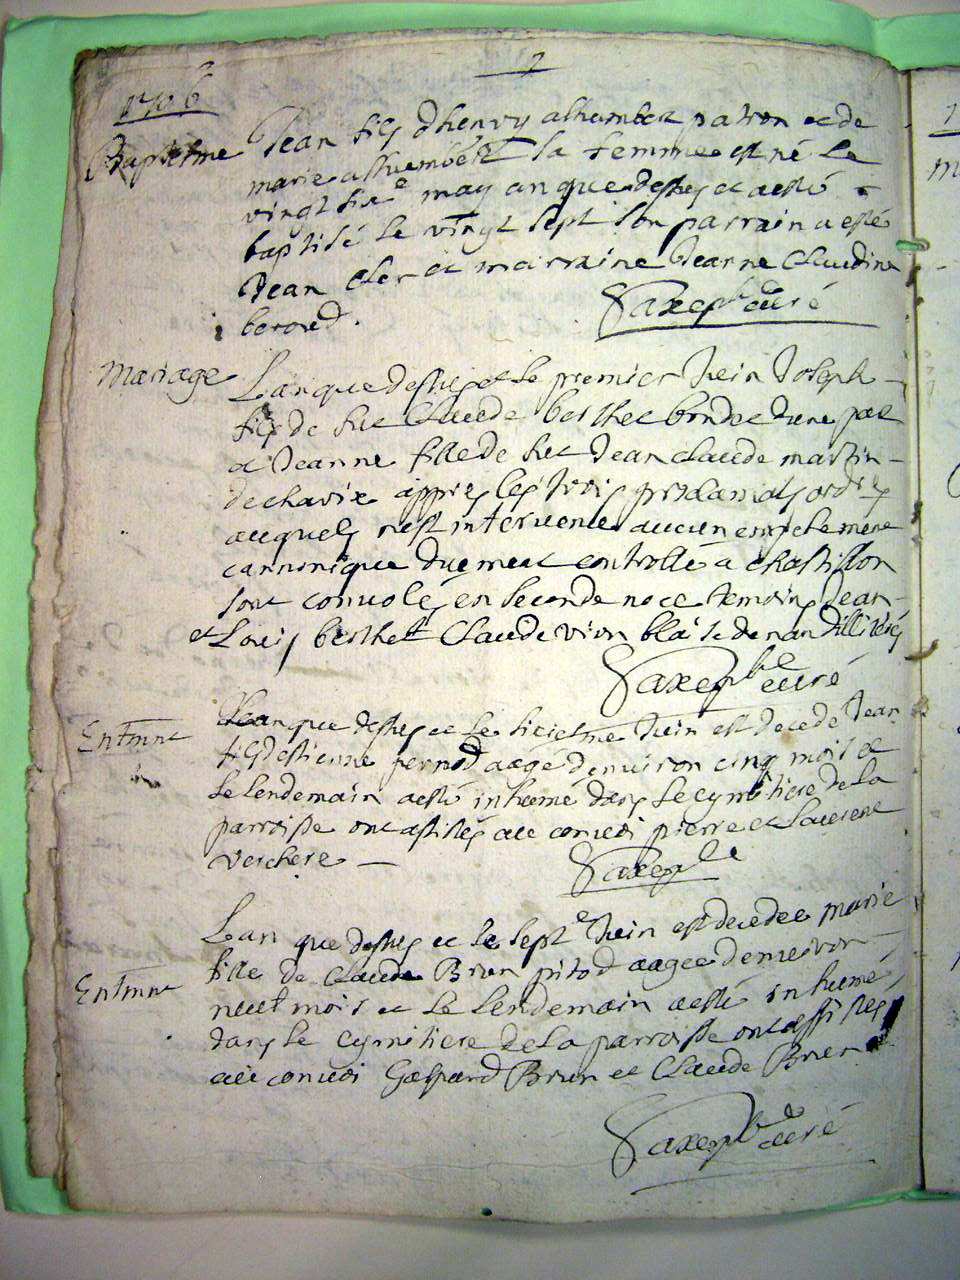 7
1706
Baptesme Jean fils dhenry alhumbert patron et de
marie alhumbert sa femme est né le
vingt sixe may an que dessus et a esté
baptisé le vingt sept son parrain a esté
Jean cler et marraine Jeanne Claudine
beroud.
curé
Mariage Lan que dessus et le premier Juin Joseph
fils de feu Claude berthet bondet dune part
et Jeanne fille de feu Jean claude martin
de chavix appres les trois proclamats ordres
auquels nest intervenu aucun empechement
cannonique duement controllé a chastillon
sont convolés en seconde noce temoins Jean
et Louis berthet Claude vion blaise de nan illiterés
curé
Entmnt Lan que dessus et le sixiesme Juin est decede Jean
fils destienne pernod aagé denviron cinq mois et
le lendemain a esté inhumé dans le cymitiere de la
parroisse ont assistés au convoi pierre et laurent
verchere
Entmnt Lan que dessus et le septe Juin est decedee marie
fille de Claude Brun pitod aagee denviron
neuf mois et le lendemain a esté inhumé
dans le cymitiere de la parroisse ont assistés
au convoi Gaspard Brun et Claude Brun
curé